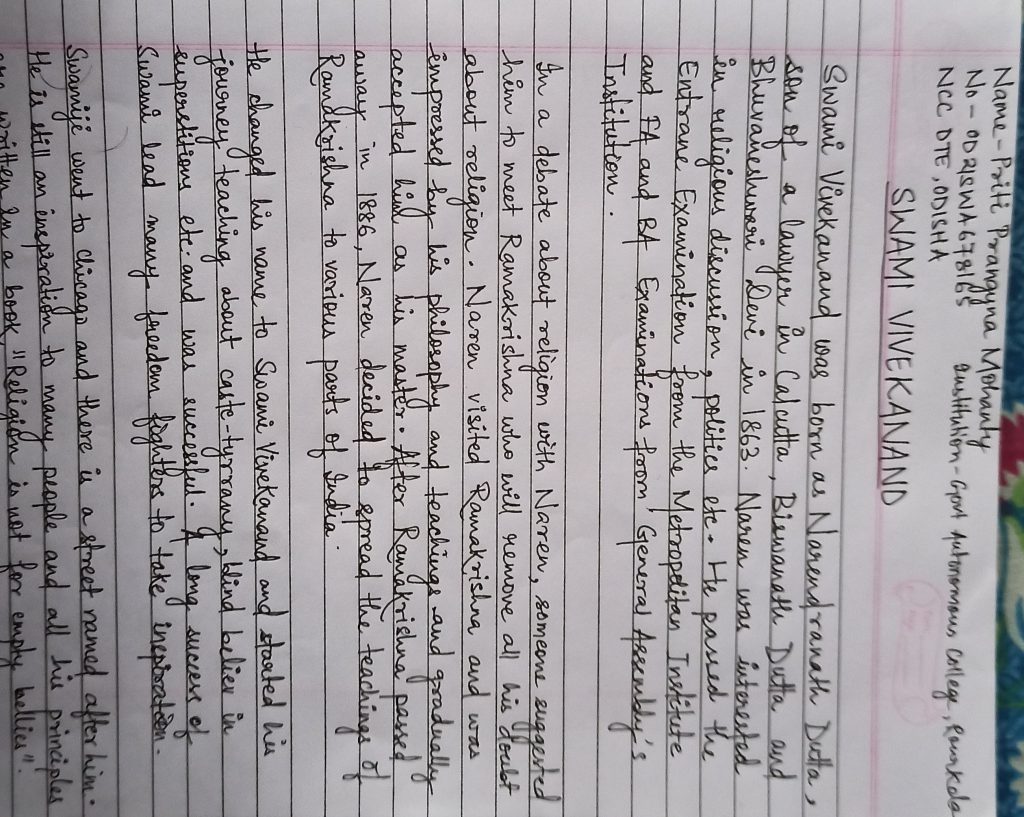 Name - Priti Prangyna Mohanty
No - OD21SWA678165 Institution - Govt Autonomous College, Rourkela
NCC DTE, ODISHA
SWAMI VIVEKANAND
Swami Vivekanand was born as Narendranath Dutta,
son of a lawyer in Calcutta, Biswanath Dutta and
Bhuvaneshwari Devi in 1863. Naren was interested
in religious discussion, politics etc. He passed the
Entrane Examination from the Metropolitan Institute
and FA and BA Examinations from General Assembly's
Institution.
In a debate about religion with Naren, someone suggested
him to meet Ramakrishna who will remove all his doubt
about religion. Naren visited Ramakrishna and was
impressed by his philosophy and teachings and gradually
accepted him as his master. After Ramakrishna passed
away in 1886, Naren decided to spread the teachings of
Ramakrishna to various parts of India.
He changed his name to Swami Vivekanand and started his
journey teaching about caste-tyrrany, blind belief in
superstitions etc. and was successful. A long success of
Swami lead many freedom fighters to take inspiration.
Swamiji went to Chicago and there is a street named after him.
He is still an inspiration to many people and all his principles
are written in a book "Religion is not for empty bellies".